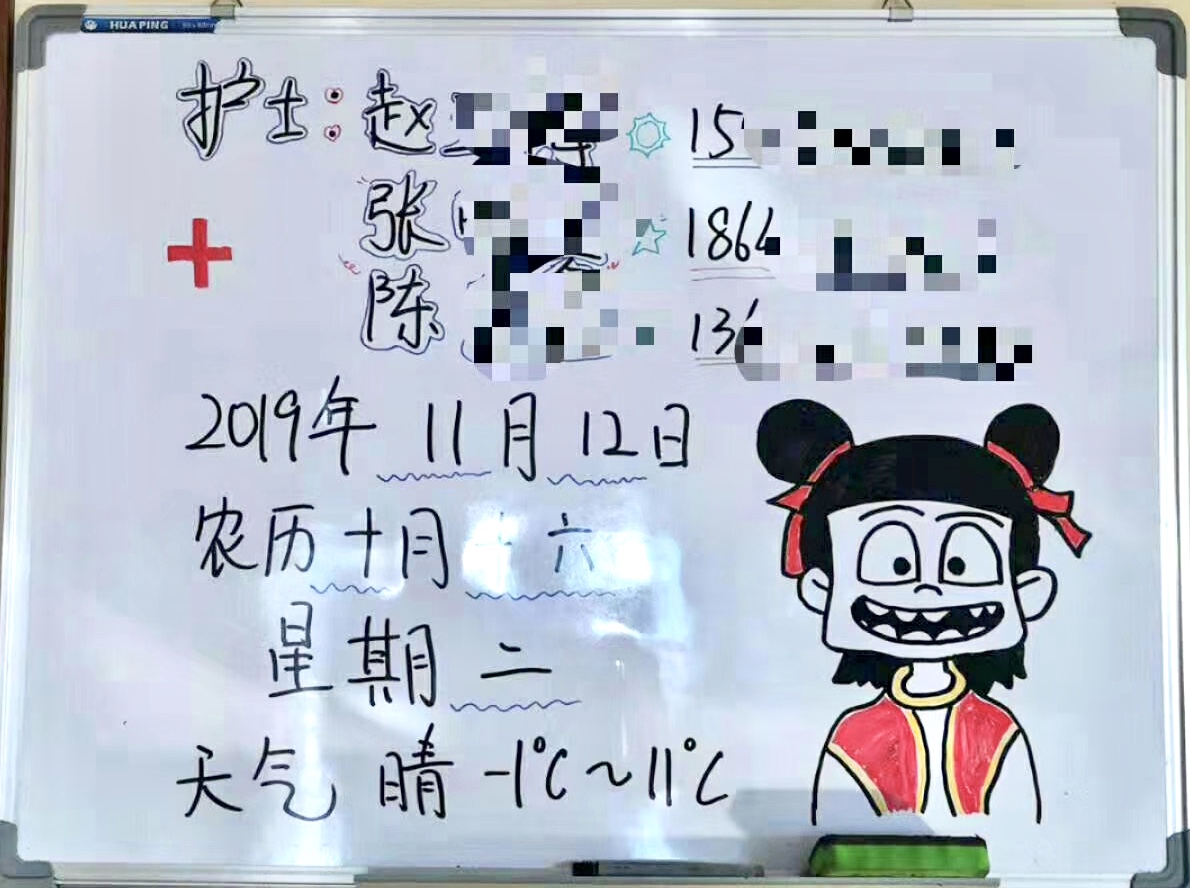 HUAPING
护士：赵 15
张 186
陈 13
2019年 11月 12日
农历十月十六
星期二
天气 晴 -1℃~11℃